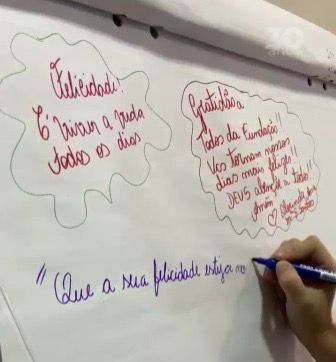 Felicidade!
É viver a vida
todos os dias
Gratidão a
todos da Fundação!!
Vcs tornam nossos
dias mais felizes!!
DEUS abençoe a todos!!
Amém!
"Que a sua felicidade esteja no
30
anos